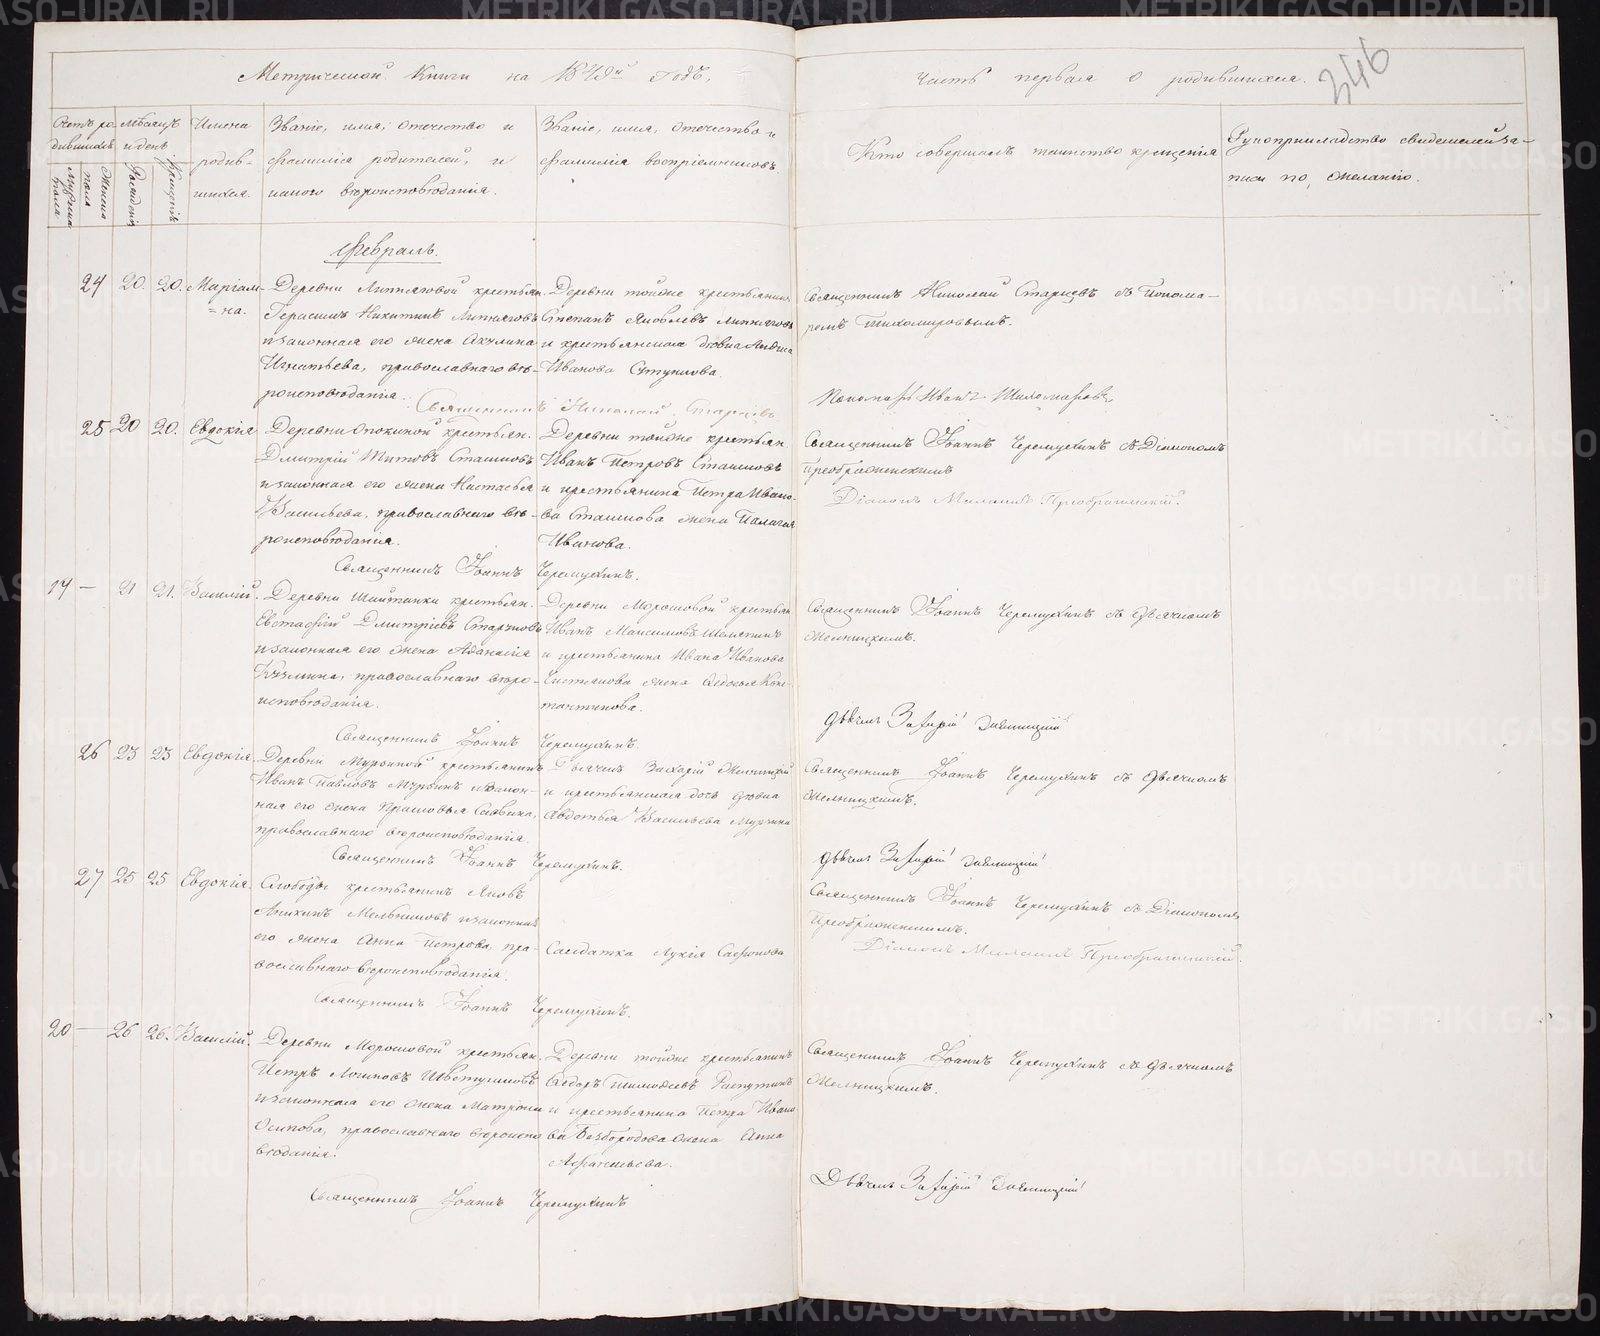 Метрической Книги на 1879й Годъ,
Часть первая о родившихся.
346
Счетъ родившихся
Мѣсяцъ и день
Имена родившихся.
Званіе, имя, отечество и фамилія родителей, и какого вѣроисповѣданія.
Званіе, имя, отечество и фамилія воспріемниковъ
Кто совершалъ таинство крещенія
Рукоприкладство свидетелей записи по желанію.
Мужеска пола
Женска пола
Рожденія
Крещенія
Февраль.
24 20. 20. Маріам-
=на.
Деревни Липняговой крестьян.
Герасимъ Никитинъ Липняговъ
и законная его жена Акулина
Игнатьева, православнаго вѣ-
роисповѣданія.
Деревни тойже крестьянинъ
Степанъ Яковлевъ Липняговъ
и крестьянская дѣвка
Иванова
Священникъ Николай Старцевъ съ Понома-
ремъ Тихомировымъ.
Пономарь Иванъ Тихомировъ
Священникъ Николай Старцевъ
25 20 20. Евдокія
Деревни крестьян.
Дмитрій Титовъ Сташковъ
и законная его жена Настасья
Васильева, православнаго вѣ-
роисповѣданія.
Деревни тойже крестьян.
Иванъ Петровъ Сташковъ
и крестьянина Петра Ивано-
ва Сташкова жена Палагея
Иванова.
Священникъ Іоаннъ Черемухинъ съ Діакономъ
Преображенскимъ
Діаконъ Преображенскій.
Священникъ Іоаннъ Черемухинъ.
19 — 21 21. Василий.
Деревни Шайтанки крестьян.
Евстафій Дмитріевъ Старковъ
и законная его жена Афанасія
Кузмина, православнаго вѣро-
исповѣданія.
Деревни Морошковой крестьян
Иванъ Максимовъ
и крестьянина Ивана Иванова
жена Федосья Конс-
тантинова.
Священникъ Іоаннъ Черемухинъ съ Дьячкомъ
Мельницкимъ.
Дьячекъ Захарій Мельницкій
Священникъ Іоаннъ Черемухинъ.
26 23 23 Евдокія.
Деревни Мурзиной крестьянинъ
Иванъ Павловъ Мурзинъ и закон-
ная его жена Прасковья Саввина,
православнаго вѣроисповѣданія
Дьячекъ Захарій Мельницкій
и крестьянская дочь дѣвка
Авдотья Васильева Мурзина
Священникъ Іоаннъ Черемухинъ съ Дьячкомъ
Мельницкимъ.
Дьячекъ Захарій Мельницкій
Священникъ Іоаннъ Черемухинъ.
27 25 25 Евдокія.
Слободы крестьянинъ Яковъ
Аникинъ Мельниковъ и законная
его жена Анна Петрова, пра-
вославнаго вѣроисповѣданія.
Салдатка Лукія Сафонова
Священникъ Іоаннъ Черемухинъ съ Діакономъ
Преображенскимъ.
Діаконъ Преображенскій.
Священникъ Іоаннъ Черемухинъ.
20 — 26 26. Василій.
Деревни Морошковой крестьян.
Петръ Логиновъ
и законная его жена Матрона
Осипова, православнаго вѣроиспо
вѣданія.
Деревни тойже крестьянинъ
Федоръ Тимофеевъ Распутинъ
и крестьянина Петра Ивано-
ва Безбородова жена Анна
Афанасьева.
Священникъ Іоаннъ Черемухинъ съ Дьячкомъ
Мельницкимъ.
Дьячекъ Захарій Мельницкій
Священникъ Іоаннъ Черемухинъ
METRIKI.GASO-URAL.RU